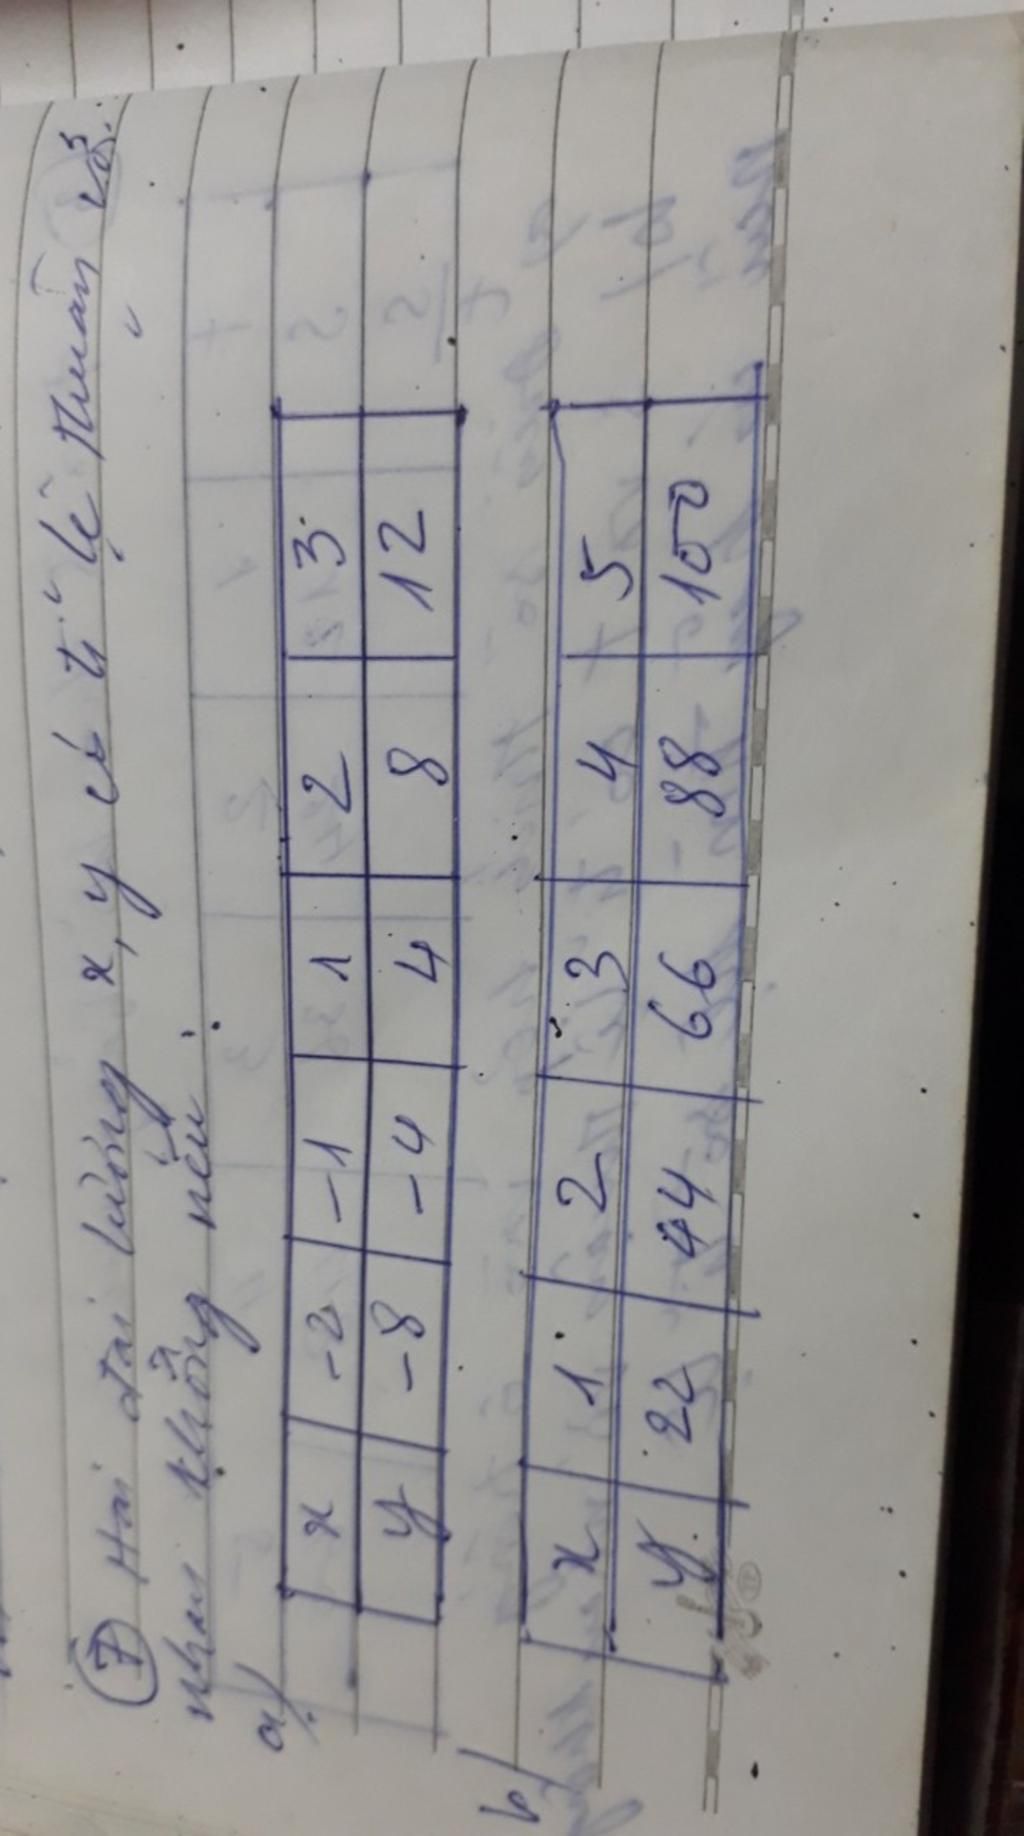 7 Hai đại lượng x, y có tỉ lệ thuận với
nhau không nếu:
a/
x -2 -1 1 2 3
y -8 -4 4 8 12
b/
x 1 2 3 4 5
y 22 44 66 88 100